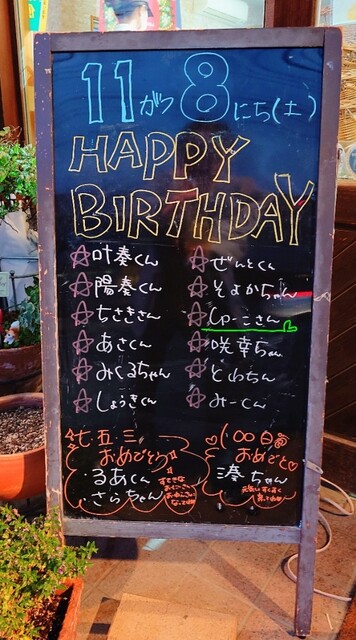 11がつ8にち(土)
HAPPY
BIRTHDAY
☆叶奏くん
☆ぜんとくん
☆陽奏くん
☆そよかちゃん
☆ちさきさん
☆しゅーこさん
☆あさくん
☆咲幸ちゃん
☆みくるちゃん
☆とわちん
☆しょうきくん
☆みーくん
七五三
おめでとう!!
るあくん
さらちゃん
すてきな
100日
おめでと♡
湊ちゃん
元気にすくすく
育ってね